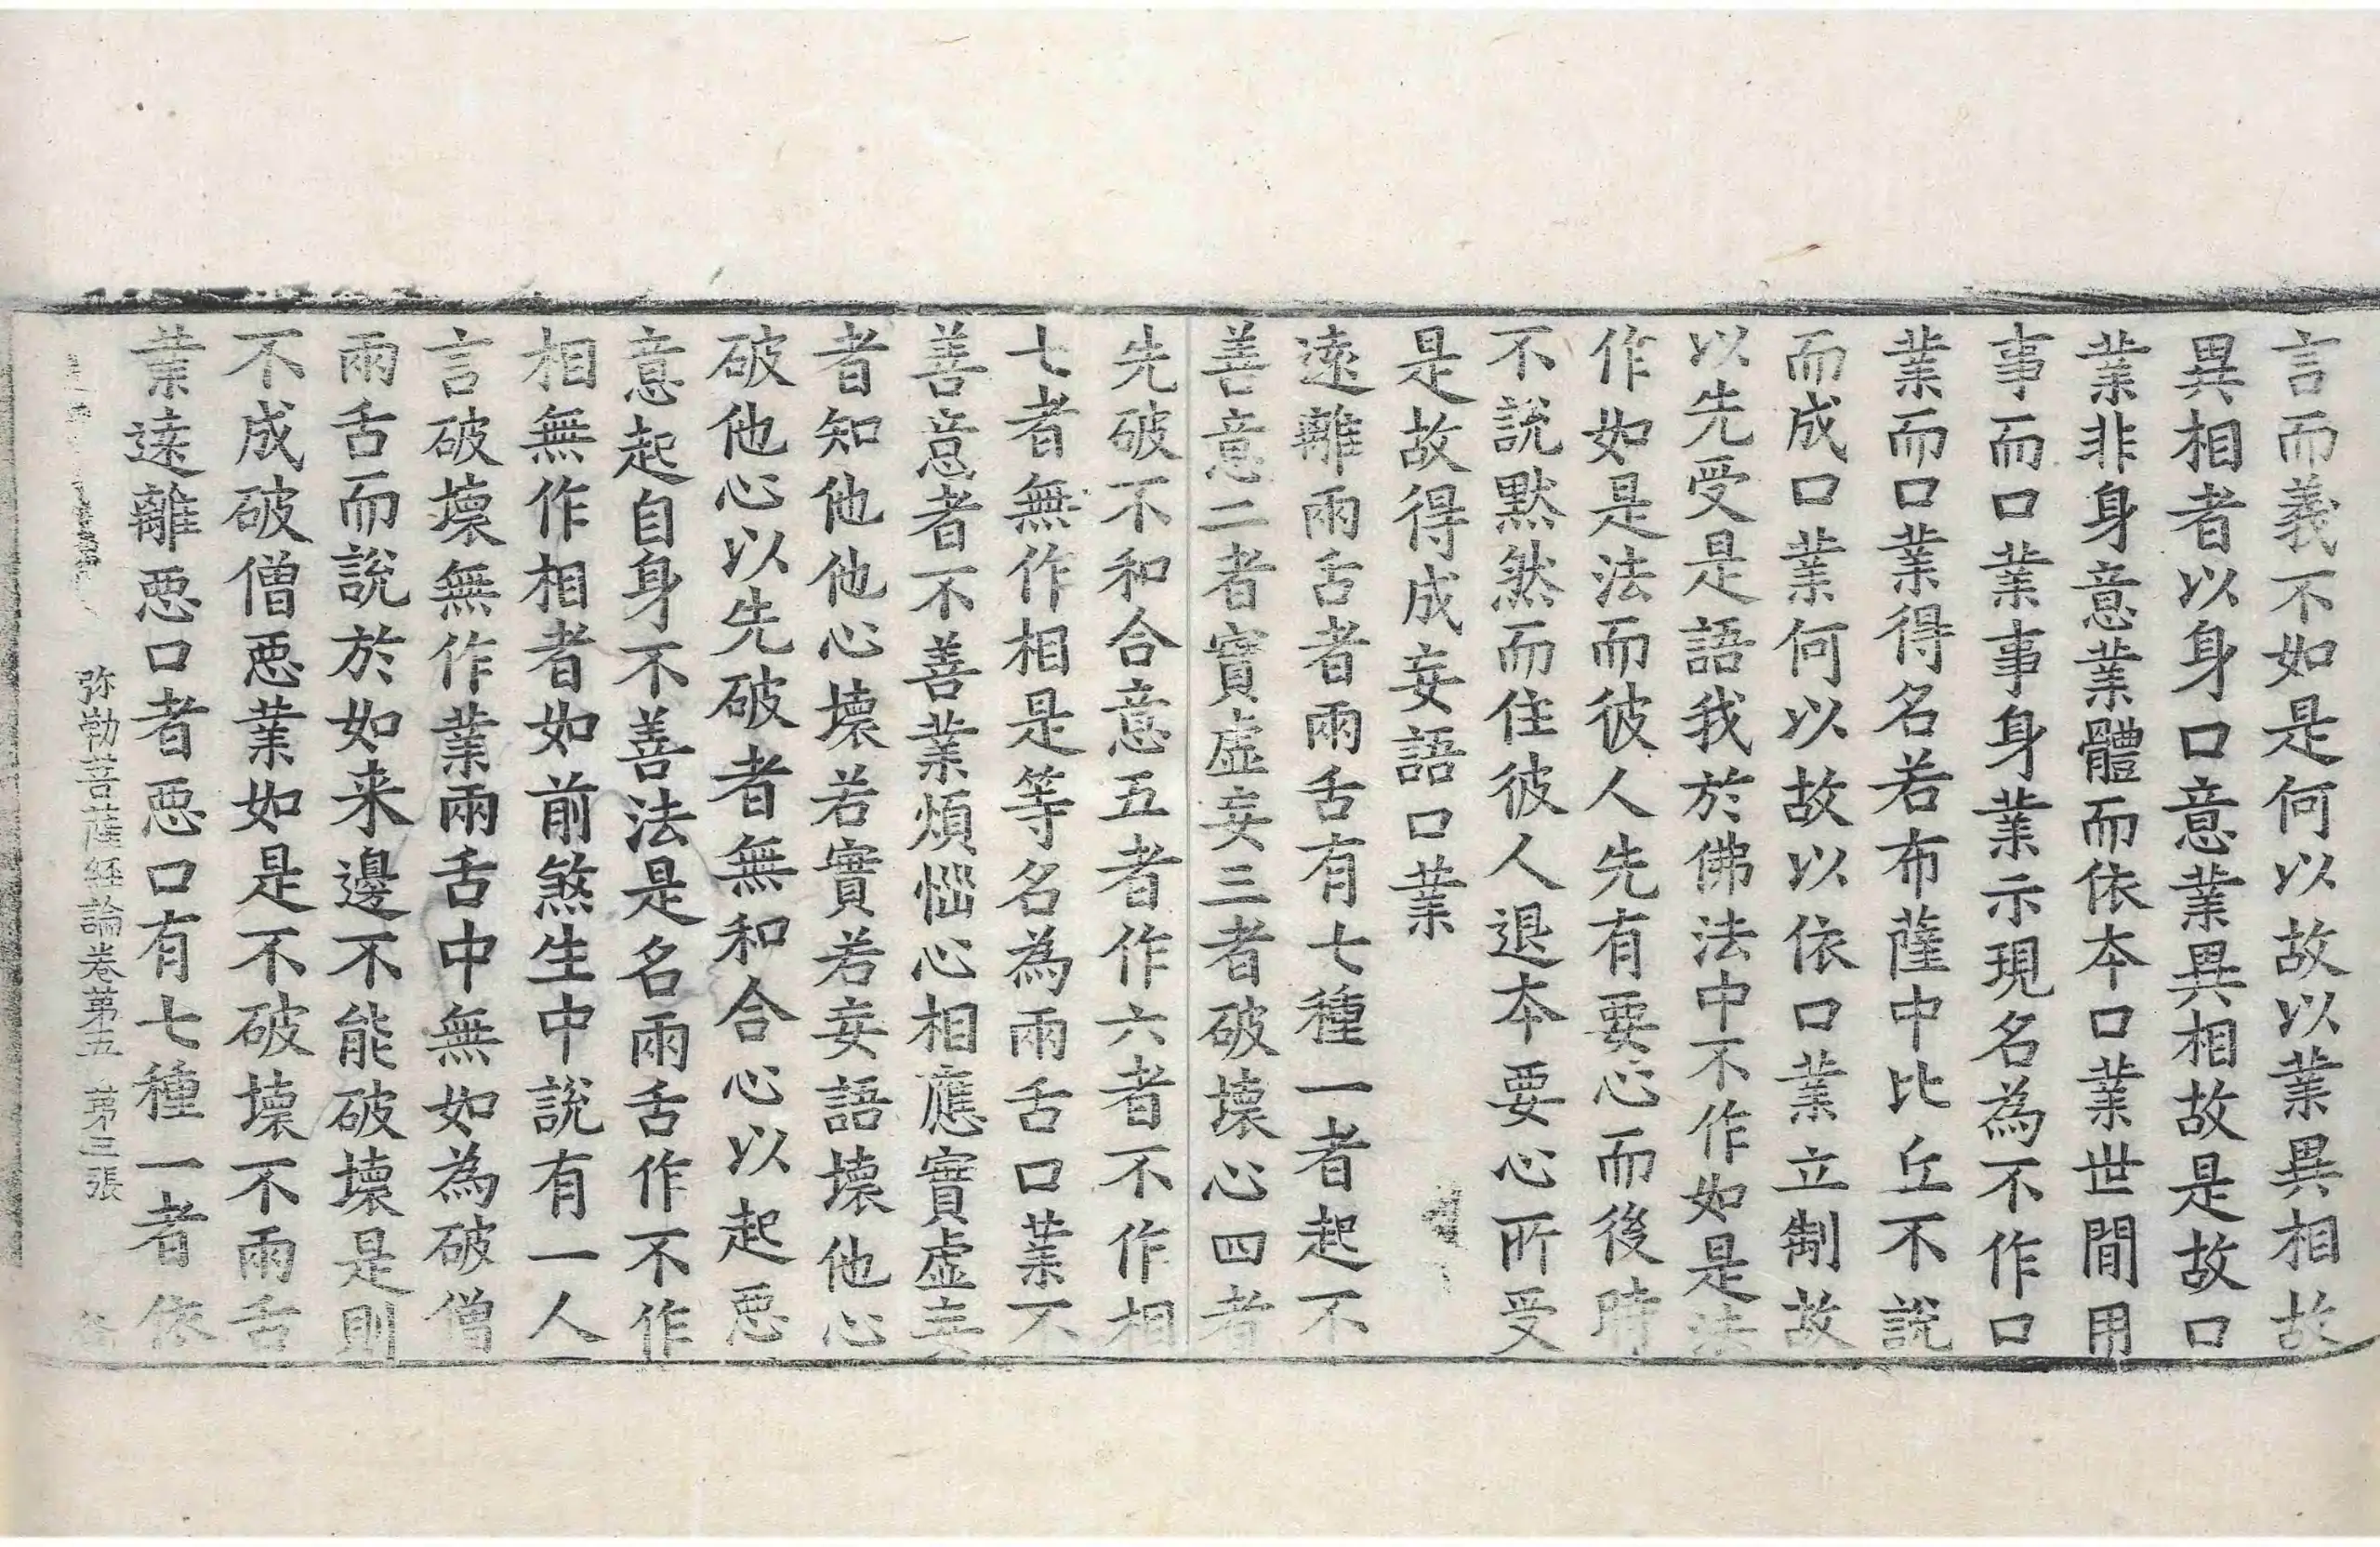 言而義不如是何以故以業異相故
異相者以身口意業異相故是故口
業非身意業體而依本口業世間用
事而口業事身業示現名為不作口
業而口業得名若布薩中比丘不說
而成口業何以故以依口業立制故
以先受是語我於佛法中不作如是法
作如是法而彼人先有要心而後時
不說默然而住彼人退本要心所受
是故得成妄語口業
遠離兩舌者兩舌有七種一者起不
善意二者實虛妄三者破壞心四者
先破不和合意五者作六者不作相
七者無作相是等名為兩舌口業不
善意者不善業煩惱心相應實虛妄
者知他他心壞若實若妄語壞他心
破他心以先破者無和合心以起惡
意起自身不善法是名兩舌作不作
相無作相者如前煞生中說有一人
言破壞無作業兩舌中無如為破僧
兩舌而說於如来邊不能破壞是則
不成破僧惡業如是不破壞不兩舌
業遠離惡口者惡口有七種一者依
弥勒菩薩経論卷苐五 苐三張